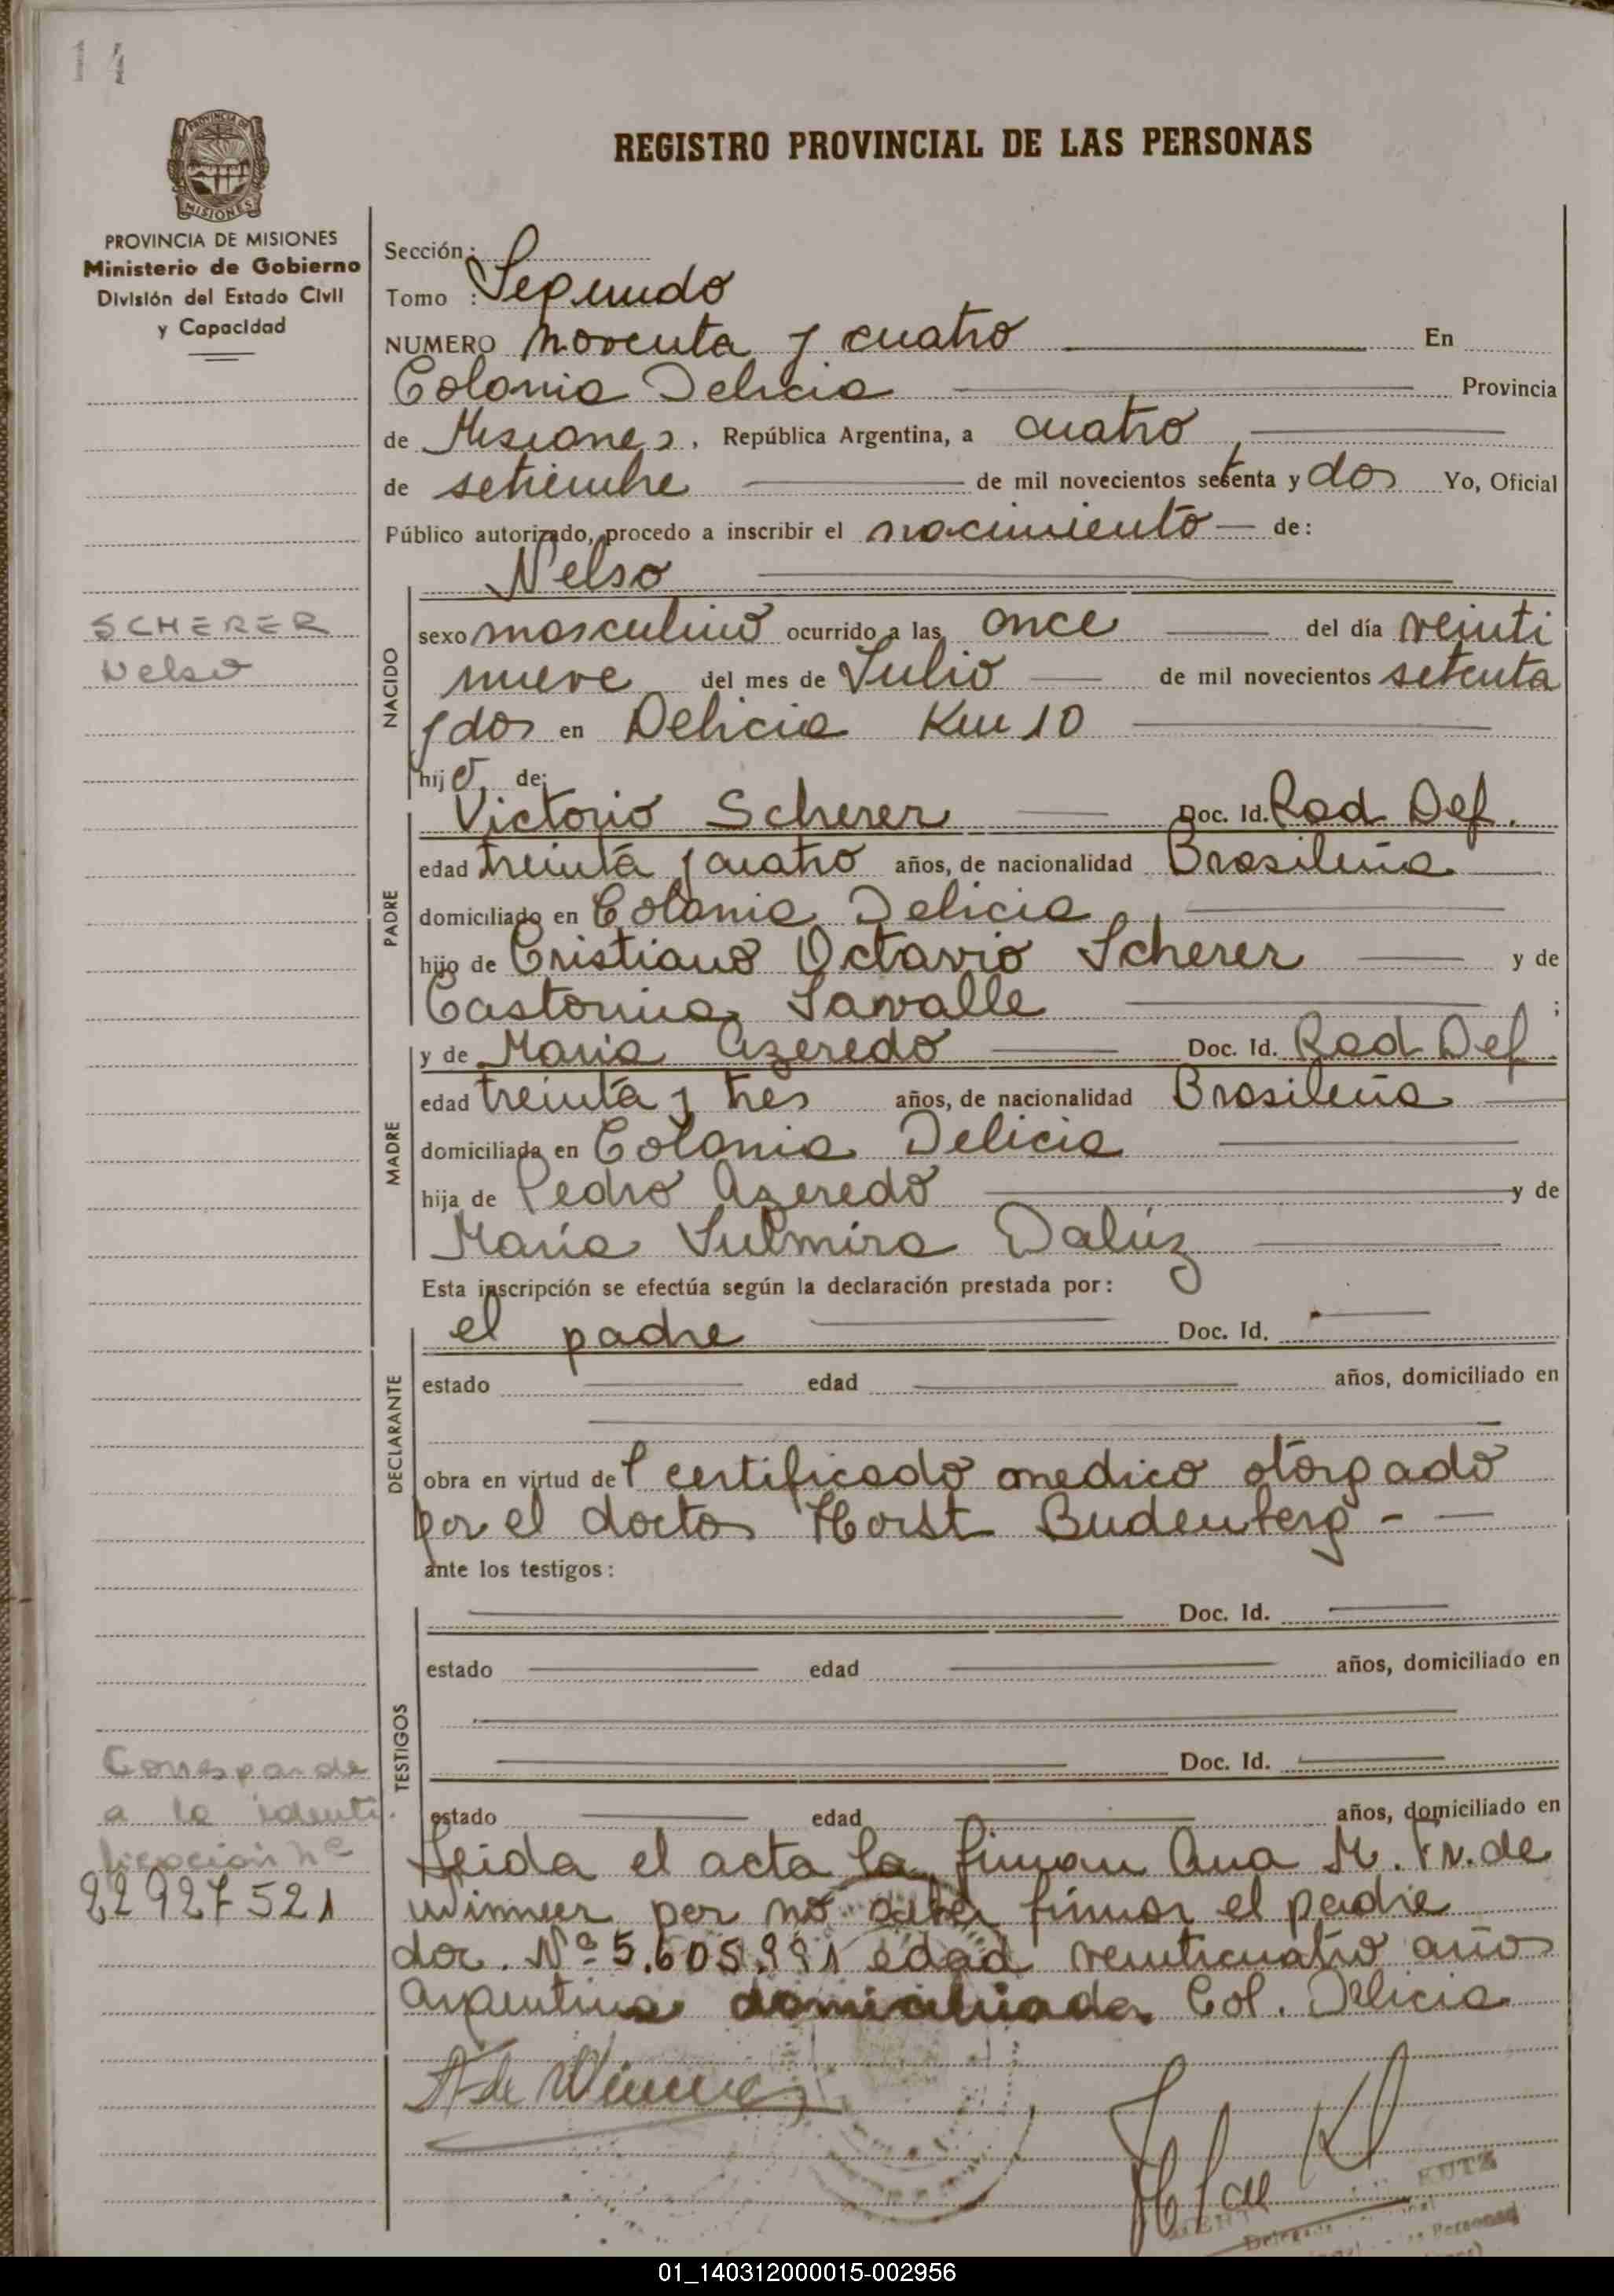 REGISTRO PROVINCIAL DE LAS PERSONAS
MISIONES
PROVINCIA DE MISIONES
Ministerio de Gobierno
División del Estado Civil
y Capacidad
Sección:
Tomo : Segundo
NUMERO noventa y cuatro En
Colonia Delicia Provincia
de Misiones, República Argentina, a cuatro
de setiembre de mil novecientos setenta y dos Yo, Oficial
Público autorizado, procedo a inscribir el nacimiento de:
Nelso
SCHERER
Nelso
NACIDO
sexo masculino ocurrido a las once del día veinti
nueve del mes de Julio de mil novecientos setenta
y dos en Delicia Km 10
hijo de:
PADRE
Victorio Scherer Doc. Id. Rad Def.
edad treinta y cuatro años, de nacionalidad Brasileña
domiciliado en Colonia Delicia
hijo de Cristiano Octavio Scherer y de
Castorina Savalle ;
MADRE
y de Maria Azeredo Doc. Id. Rad Def.
edad treinta y tres años, de nacionalidad Brasileña
domiciliada en Colonia Delicia
hija de Pedro Azeredo y de
María Julmira Dalúz
Esta inscripción se efectúa según la declaración prestada por:
DECLARANTE
el padre Doc. Id.
estado edad años, domiciliado en
obra en virtud del certificado medico otorgado
por el doctor Horst Budenberg -
ante los testigos:
TESTIGOS
Doc. Id.
estado edad años, domiciliado en
Doc. Id.
estado edad años, domiciliado en
Corresponde
a la identi
ficación nº
22927521
Leida el acta la firman Ana M. de
Winner por no saber firmar el padre
doc. Nº 5.605.991 edad veinticuatro años
Argentina domiciliada Col. Delicia
A de Winner
KUTZ
Personas
01_140312000015-002956